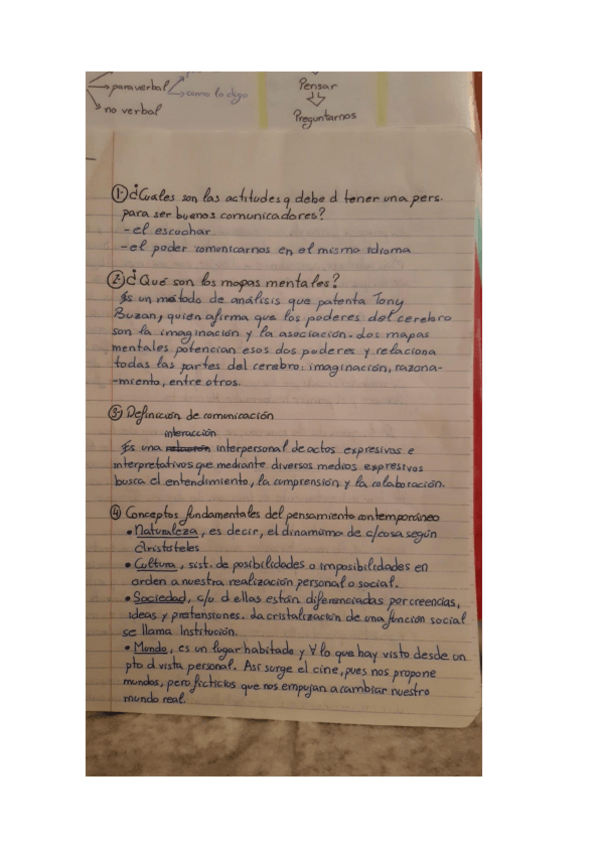 → paraverbal
→ como lo digo
→ no verbal
Pensar
Preguntarnos
1- ¿Cuales son las actitudes q debe d tener una pers.
para ser buenos comunicadores?
- el escuchar
- el poder comunicarnos en el mismo idioma
2- ¿Qué son los mapas mentales?
Es un método de análisis que patenta Tony
Buzan, quien afirma que los poderes del cerebro
son la imaginación y la asociación. Los mapas
mentales potencian esos dos poderes y relaciona
todas las partes del cerebro: imaginación, razona-
-miento, entre otros.
3- Definición de comunicación
interacción
Es una relación interpersonal de actos expresivos e
interpretativos que mediante diversos medios expresivos
busca el entendimiento, la comprensión y la colaboración.
4 Conceptos fundamentales del pensamiento contemporáneo
• Naturaleza, es decir, el dinamismo de c/cosa según
Aristóteles
• Cultura, sist. de posibilidades o imposibilidades en
orden a nuestra realización personal o social.
• Sociedad, c/u d ellas están diferenciadas por creencias,
ideas y pretensiones. La cristalización de una función social
se llama Institución.
• Mundo, es un lugar habitado y ∀ lo que hay visto desde un
pto d vista personal. Así surge el cine, pues nos propone
mundos, pero ficticios que nos empujan a cambiar nuestro
mundo real.